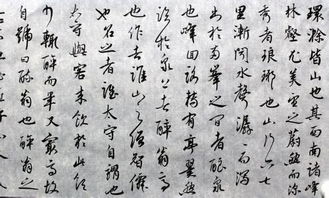 環滁皆山也其西南諸峰
林壑尤美望之蔚然而深
秀者琅琊也山行六七
里漸聞水聲潺潺而瀉
出於兩峰之間者釀泉
也峰回路轉有亭翼然
臨於泉上者醉翁亭
也作亭者誰山之僧智僊
也名之者誰太守自謂也
太守與客來飲於此飲
少輒醉而年又最高故
自號曰醉翁也醉翁之